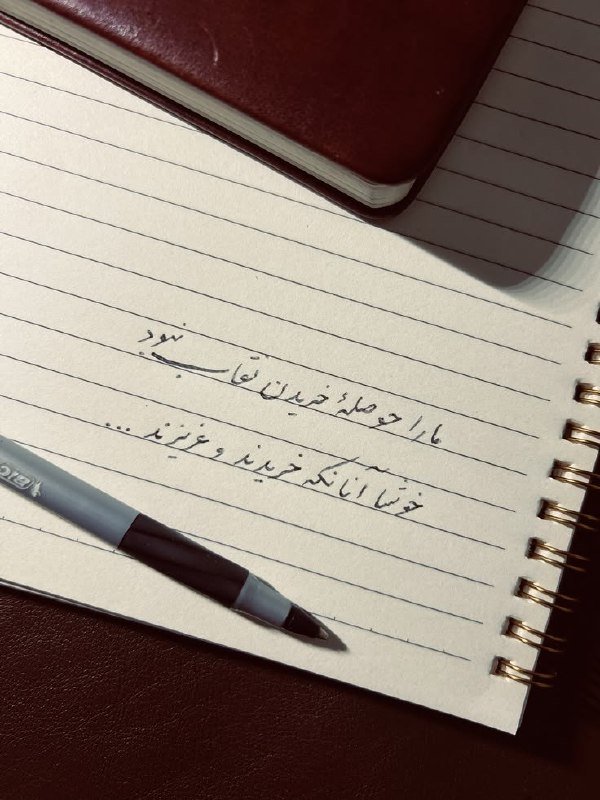 مارا حوصلهٔ خریدن نقاب نبود
خوشا آنانکه خریدند و عزیزند ...
BIC